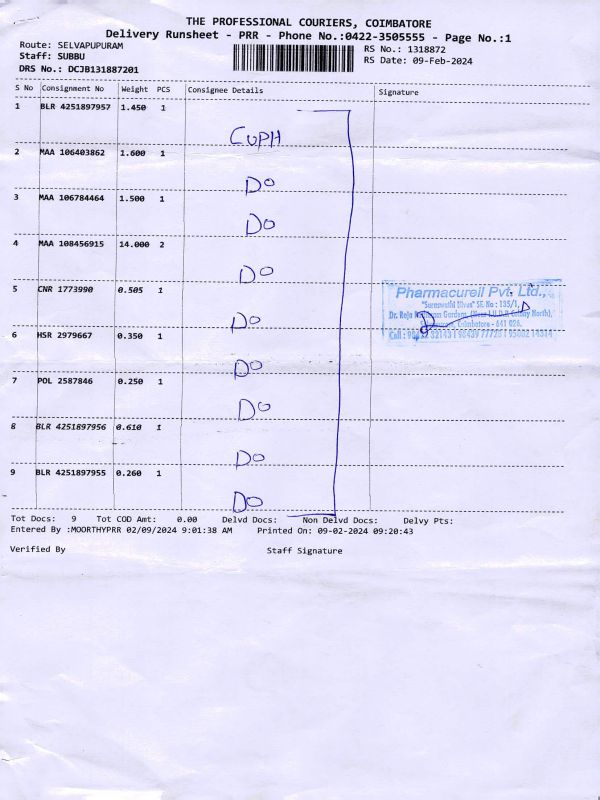 THE PROFESSIONAL COURIERS, COIMBATORE
Delivery Runsheet - PRR - Phone No.:0422-3505555 - Page No.:1
Route: SELVAPUPURAM RS No.: 1318872
Staff: SUBBU RS Date: 09-Feb-2024
DRS No.: DCJB131887201
S No Consignment No Weight PCS Consignee Details Signature
1 BLR 4251897957 1.450 1
CUPH
2 MAA 106403862 1.600 1
DO
3 MAA 106784464 1.500 1
DO
4 MAA 108456915 14.000 2
DO
5 CNR 1773990 0.505 1
DO
Pharmacureil Pvt. Ltd.,
"Saraswathi Illves" SF. No : 135/1,
Dr. Raja Gardam,
Coimbatore - 641 026.
Cell :
6 HSR 2979667 0.350 1
DO
7 POL 2587846 0.250 1
DO
8 BLR 4251897956 0.610 1
DO
9 BLR 4251897955 0.260 1
DO
Tot Docs: 9 Tot COD Amt: 0.00 Delvd Docs: Non Delvd Docs: Delvy Pts:
Entered By :MOORTHYPRR 02/09/2024 9:01:38 AM Printed On: 09-02-2024 09:20:43
Verified By Staff Signature